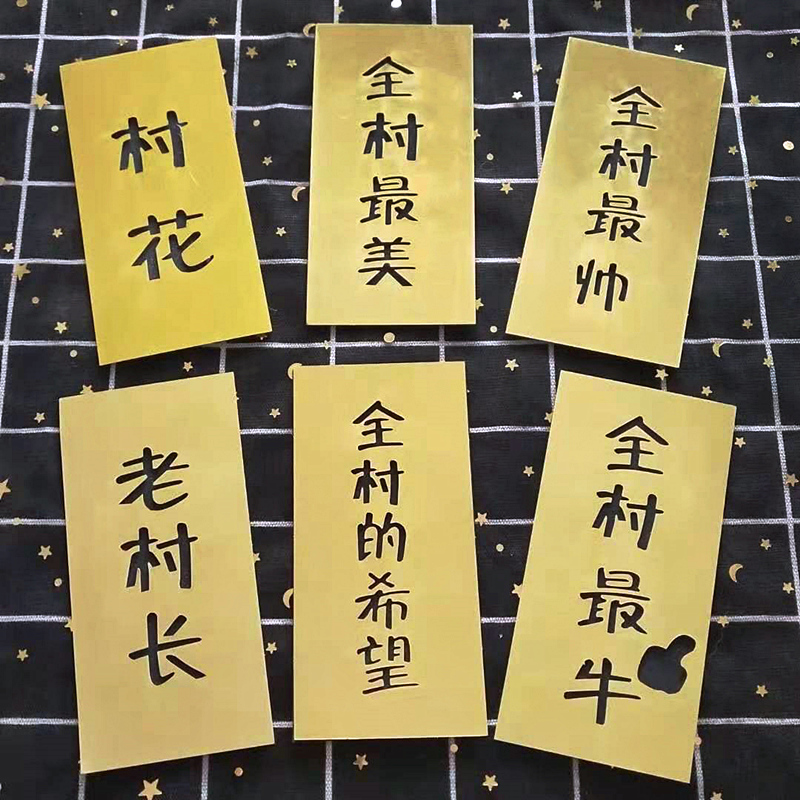 村花
全村最美
全村最帅
老村长
全村的希望
全村最牛